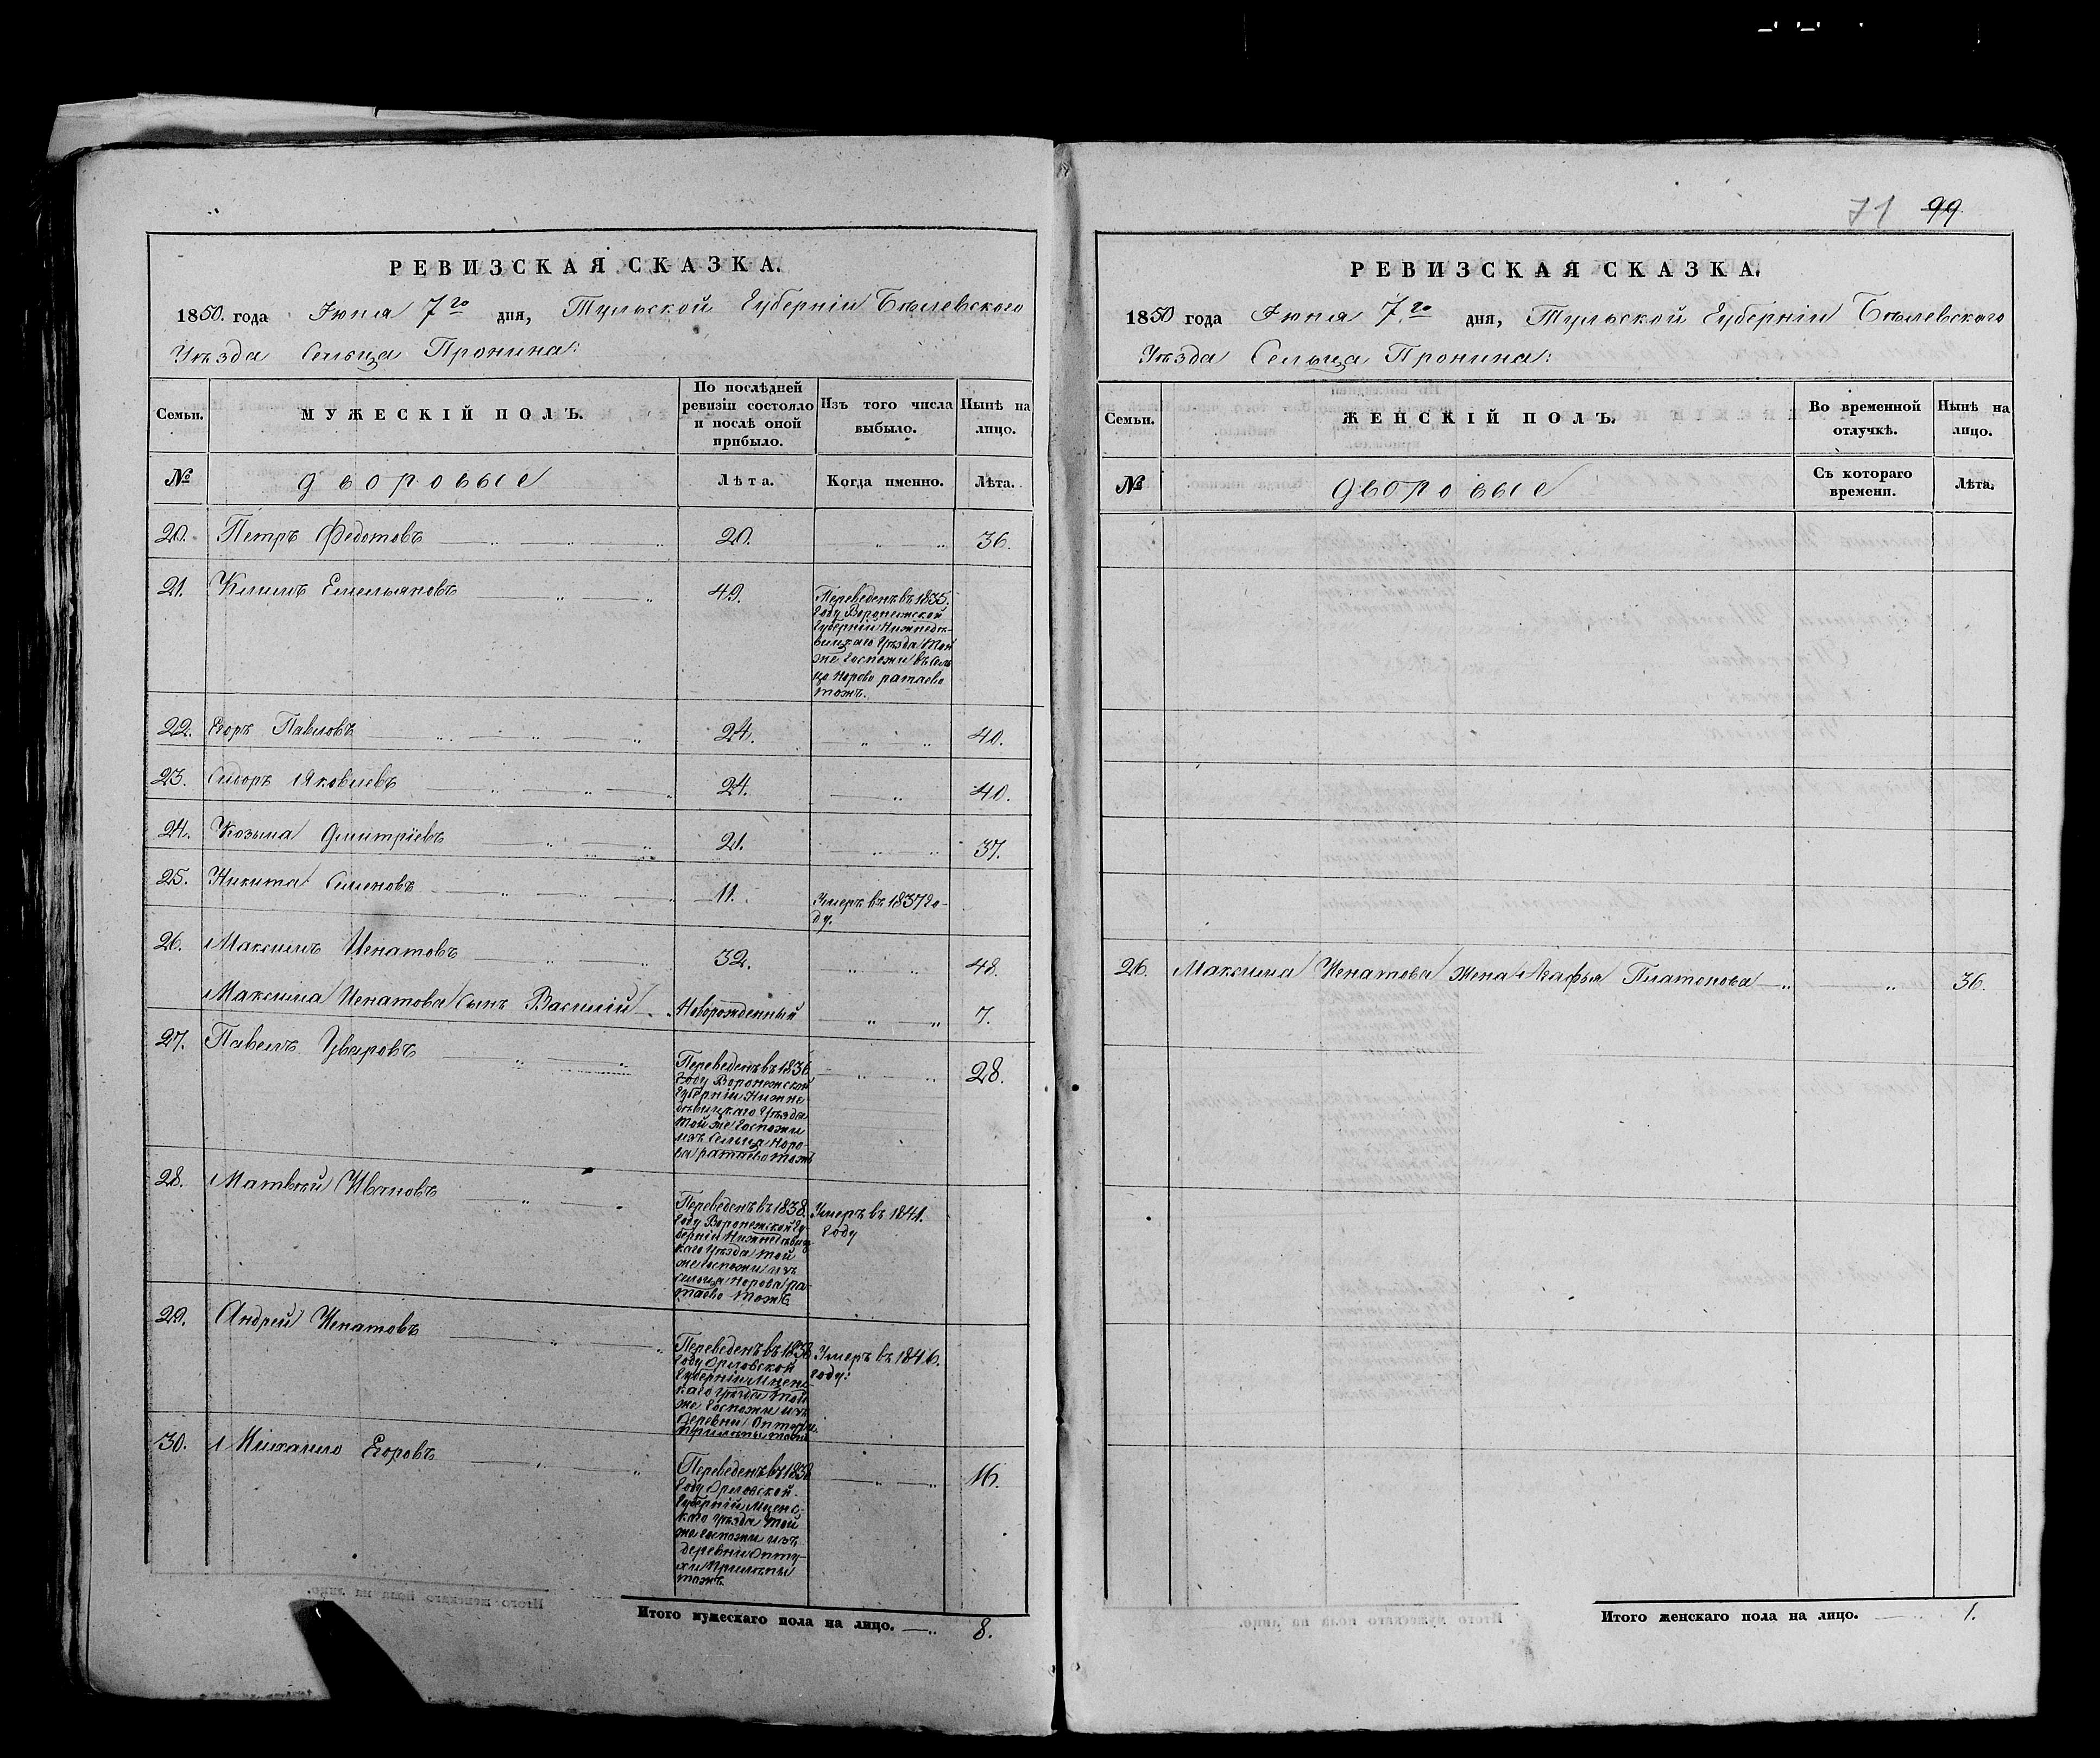 71 99
РЕВИЗСКАЯ СКАЗКА.
1850. года Июня 7го дня, Тульской Губерніи Бѣлевскаго
Уѣзда Сельца Пронина:
Семьи.
МУЖЕСКІЙ ПОЛЪ.
По послѣдней
ревизіи состояло
и послѣ оной
прибыло.
Изъ того числа
выбыло.
Нынѣ на
лицо.
№
дворовые
Лѣта.
Когда именно.
Лѣта.
20. Петръ Федотовъ 20. 36.
21. Климъ Емельяновъ 49.
Переведенъ въ 1835.
году Воронежской
Губерніи Нижнедѣ-
вицкаго Уѣзда той
же Госпожи въ Сель
цо Норово ратаево
тожъ.
22. Егоръ Павловъ 24. 40.
23. Сидоръ Яковлевъ 24. 40.
24. Козьма Дмитріевъ 21. 37.
25. Никита Семеновъ 11. Умеръ въ 1837 го-
ду.
26. Максимъ Игнатовъ 32. 48.
Максима Игнатова Сынъ Василій Новорожденный 7.
27. Павелъ Уваровъ 28.
Переведенъ въ 1836
году Воронежской
Губерніи Нижне
дѣвицкаго Уѣзда
той же Госпожи
изъ Сельца Норо-
ва ратаево тожъ
28. Матвѣй Ивановъ
Переведенъ въ 1838.
году Воронежской Гу-
берніи Нижнедѣвиц
каго Уѣзда той
же Госпожи изъ
Сельца Норова ра-
таево тожъ
Умеръ въ 1841.
году
29. Андрей Игнатовъ
Переведенъ въ 1838
году Орловской
Губерніи Мценс-
каго Уѣзда той
же Госпожи изъ
деревни Оптухи
тожъ
Умеръ въ 1846.
году:
30. Михайло Егоровъ 16.
Переведенъ въ 1838
году Орловской
Губерніи Мценс-
каго Уѣзда той
же Госпожи изъ
деревни Опту-
хи
тожъ
Итого мужескаго пола на лицо. 8.
РЕВИЗСКАЯ СКАЗКА.
1850 года Июня 7го дня, Тульской Губерніи Бѣлевскаго
Уѣзда Сельца Пронина:
Семьи.
ЖЕНСКІЙ ПОЛЪ.
Во временной
отлучкѣ.
Нынѣ на
лицо.
№
дворовые
Съ котораго
времени.
Лѣта.
26. Максима Игнатова Жена Агафья Платонова 36.
Итого женскаго пола на лицо. 1.